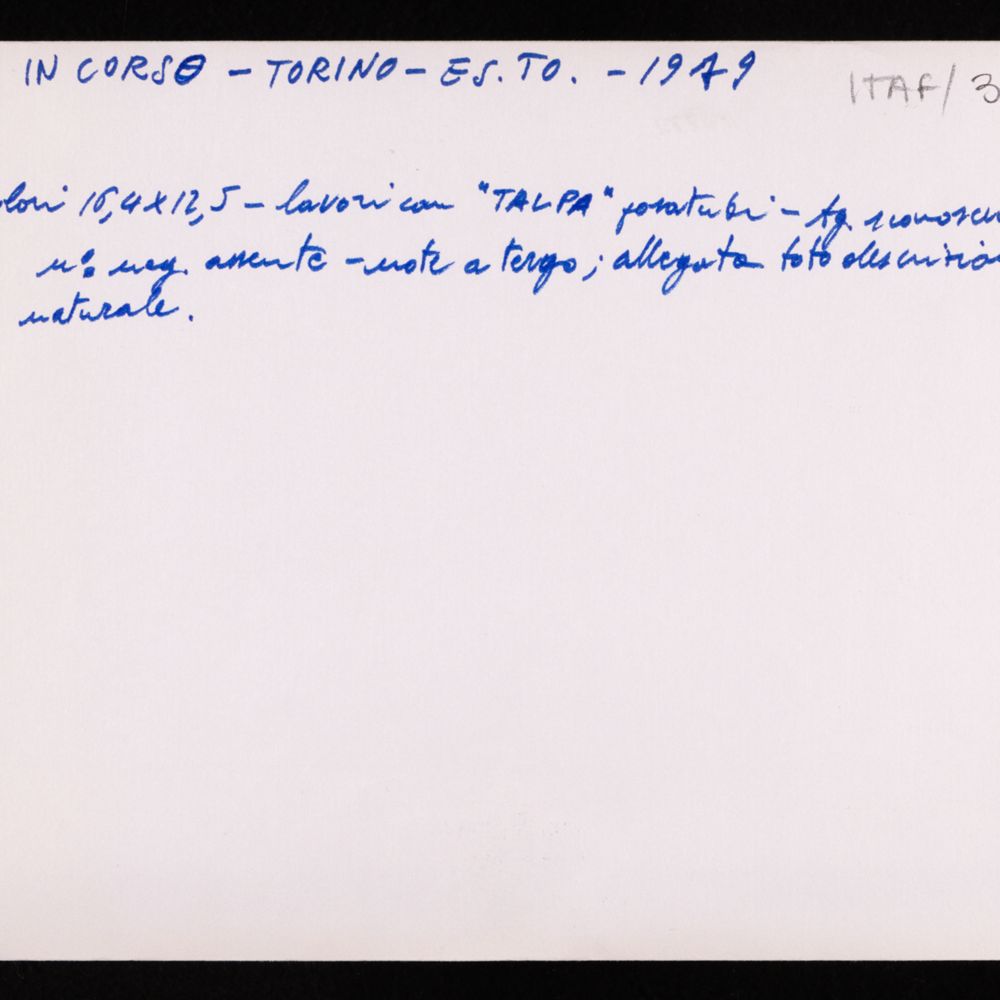 IN CORSO - TORINO - ES. TO. - 1979
ITAF/3
lori 16,4x12,5 - lavori con "TALPA" posatubi - Ag. sconosciu
n° neg. assente - note a tergo; allegata foto descrizio
naturale.